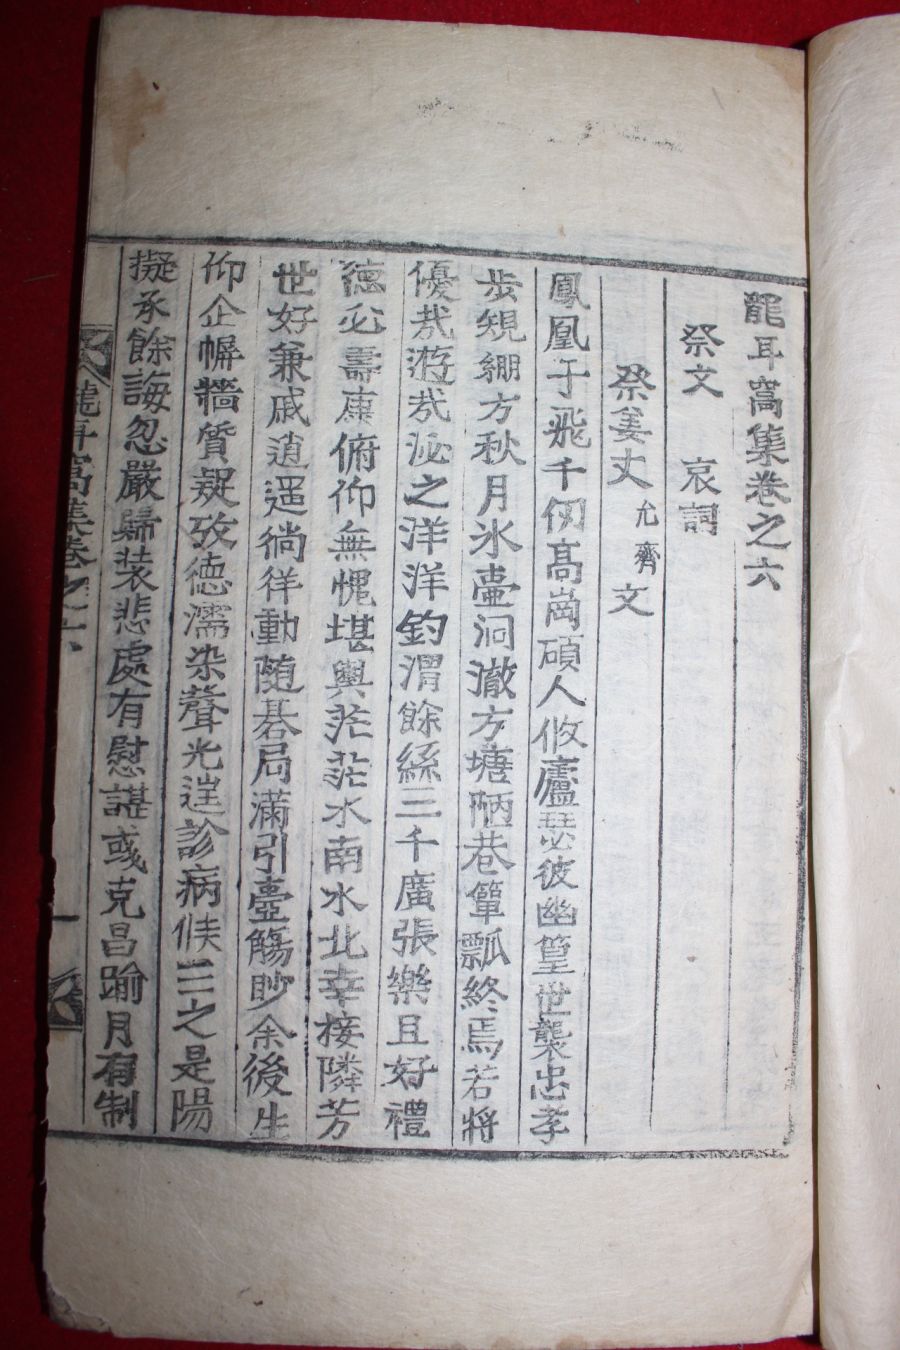 龍耳窩集卷之六
祭文 哀詞
祭姜丈允齊文
鳳凰于飛千仞高崗碩人攸廬瑟彼幽篁世襲忠孝
步規繃方秋月氷壺洞澈方塘陋巷簞瓢終焉若將
優哉游哉泌之洋洋釣渭餘絲三千廣張樂且好禮
德必壽康俯仰無愧堪輿茫茫水南水北幸接隣芳
世好兼戚逍遥徜徉動隨碁局滿引壺觴眇余後生
仰企幈牆質疑攷德濡染聲光遑診病候三之是陽
擬承餘誨忽嚴歸装悲處有慰諶或克昌踰月有制
龍耳窩集卷之六 一